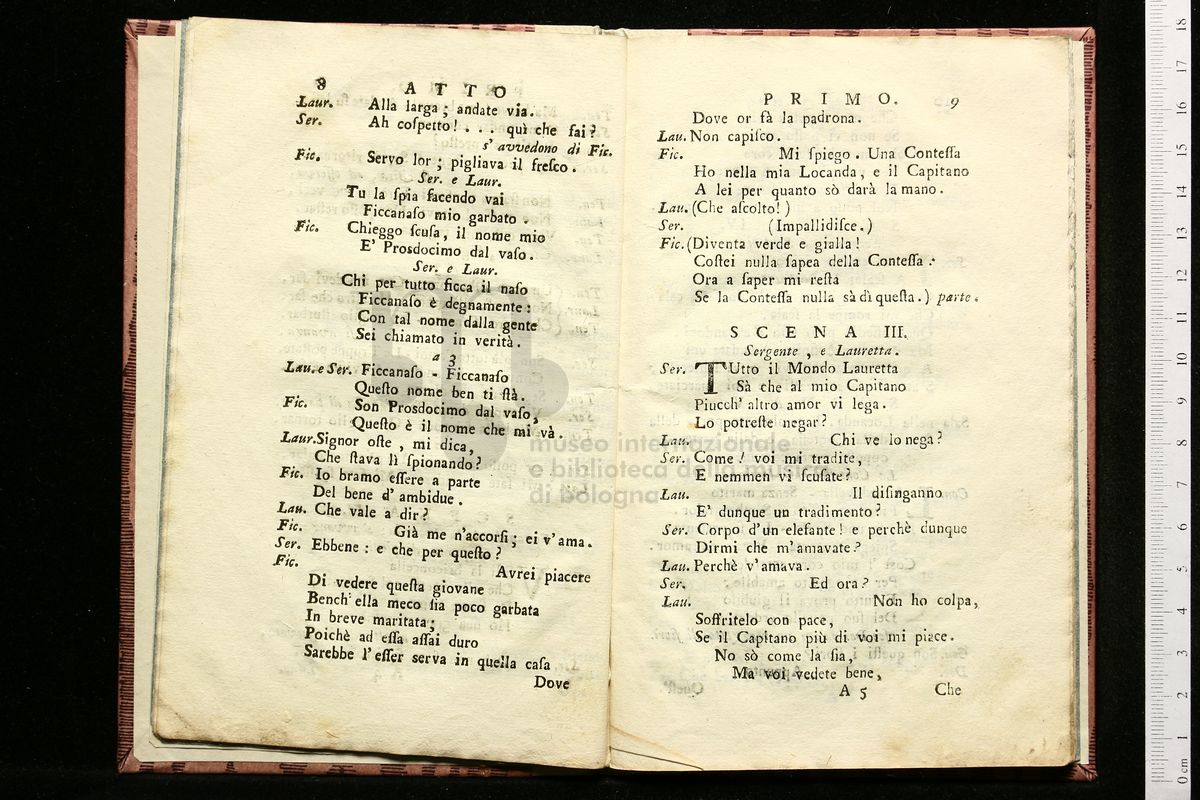 8 ATTO
Laur. Alla larga; andate via.
Ser. Ah coſpetto!... quì che fai?
s' avvedono di Fic.
Fic. Servo lor; pigliava il freſco.
Ser. e Laur.
Tu la ſpia facendo vai
Ficcanaſo mio garbato.
Fic. Chieggo ſcuſa, il nome mio
E' Prosdocimo dal vaſo.
Ser. e Laur.
Chi per tutto ficca il naſo
Ficcanaſo è degnamente:
Con tal nome dalla gente
Sei chiamato in verità.
a 3
Lau. e Ser. Ficcanaſo - Ficcanaſo
Queſto nome ben ti ſtà.
Fic. Son Prosdocimo dal vaſo,
Queſto è il nome che mi và.
Laur. Signor oſte, mi dica,
Che ſtava lì ſpionando?
Fic. Io bramo eſſere a parte
Del bene d' ambidue.
Lau. Che vale a dir?
Fic. Già me n'accorſi; ei v'ama.
Ser. Ebbene: e che per queſto?
Fic. Avrei piacere
Di vedere queſta giovane
Bench' ella meco ſia poco garbata
In breve maritata;
Poichè ad eſſa aſſai duro
Sarebbe l'eſſer serva in quella caſa
Dove
PRIMO. 9
Dove or fà la padrona.
Lau. Non capiſco.
Fic. Mi ſpiego. Una Conteſſa
Ho nella mia Locanda, e il Capitano
A lei per quanto sò darà la mano.
Lau. (Che aſcolto!)
Ser. (Impallidiſce.)
Fic. (Diventa verde e gialla!
Coſtei nulla ſapea della Conteſſa:
Ora a ſaper mi reſta
Se la Conteſſa nulla sà di queſta.) parte.
SCENA III.
Sergente, e Lauretta.
Ser. TUtto il Mondo Lauretta
Sà che al mio Capitano
Piucch' altro amor vi lega.
Lo potreſte negar?
Lau. Chi ve lo nega?
Ser. Come! voi mi tradite,
E nemmen vi ſcuſate?
Lau. Il diſinganno
E' dunque un tradimento?
Ser. Corpo d'un elefante! e perchè dunque
Dirmi che m'amavate?
Lau. Perchè v'amava.
Ser. Ed ora?
Lau. Non ho colpa,
Soffritelo con pace,
Se il Capitano più di voi mi piace.
No sò come la ſia,
Ma voi vedete bene,
A 5 Che
museo internazionale
e biblioteca della musica
di bologna
0 cm 1 2 3 4 5 6 7 8 9 10 11 12 13 14 15 16 17 18